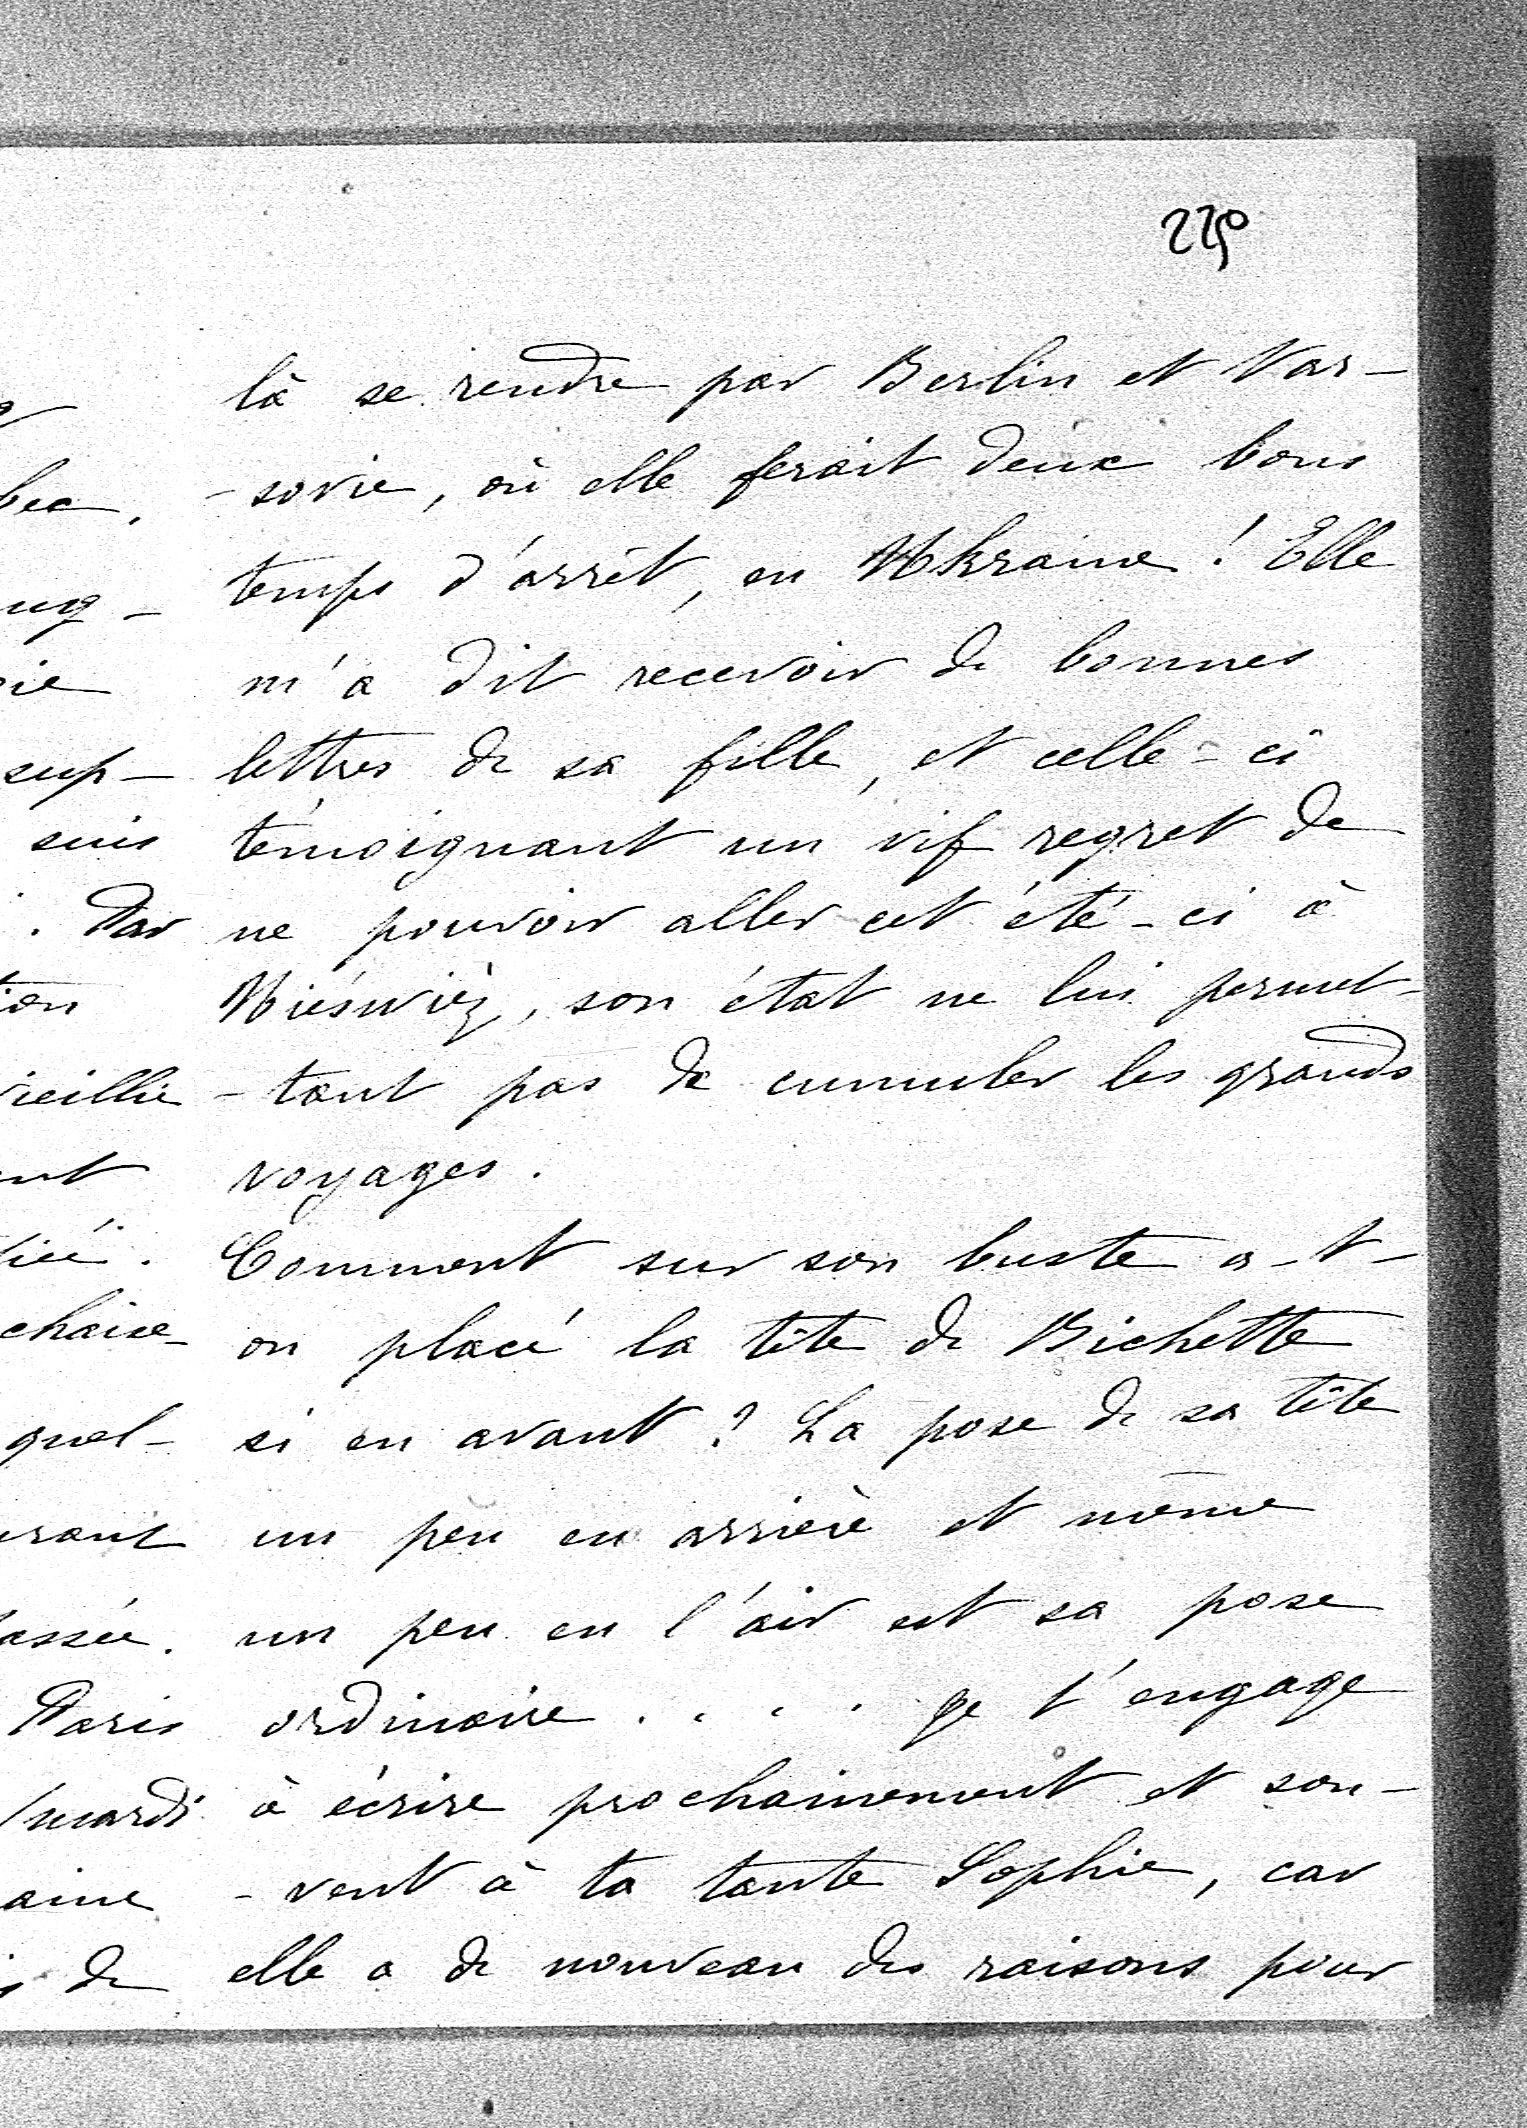 là se rendre par Berlin et Var-
-sovie, où elle ferait deux bons
temps d'arrêt, en Ukraine ! Elle
m'a dit recevoir de bonnes
lettres de sa fille, et celle-ci
témoignant un vif regret de
ne pouvoir aller cet été-ci à
Nieswiéz, son état ne lui permet-
-tant pas de cumuler les grands
voyages.
Comment sur son buste a-t-
on placé la tête de Bichette
si en avant ? La pose de sa tête
un peu en arrière et même
un peu en l'air est sa pose
ordinaire . . . . Je t'engage
à écrire prochainement et sou-
-vent à ta tante Sophie, car
elle a de nouveau des raisons pour
bec.
sup-
suis
. Par
vieillie
chaise
quel-
Paris
mardi
de